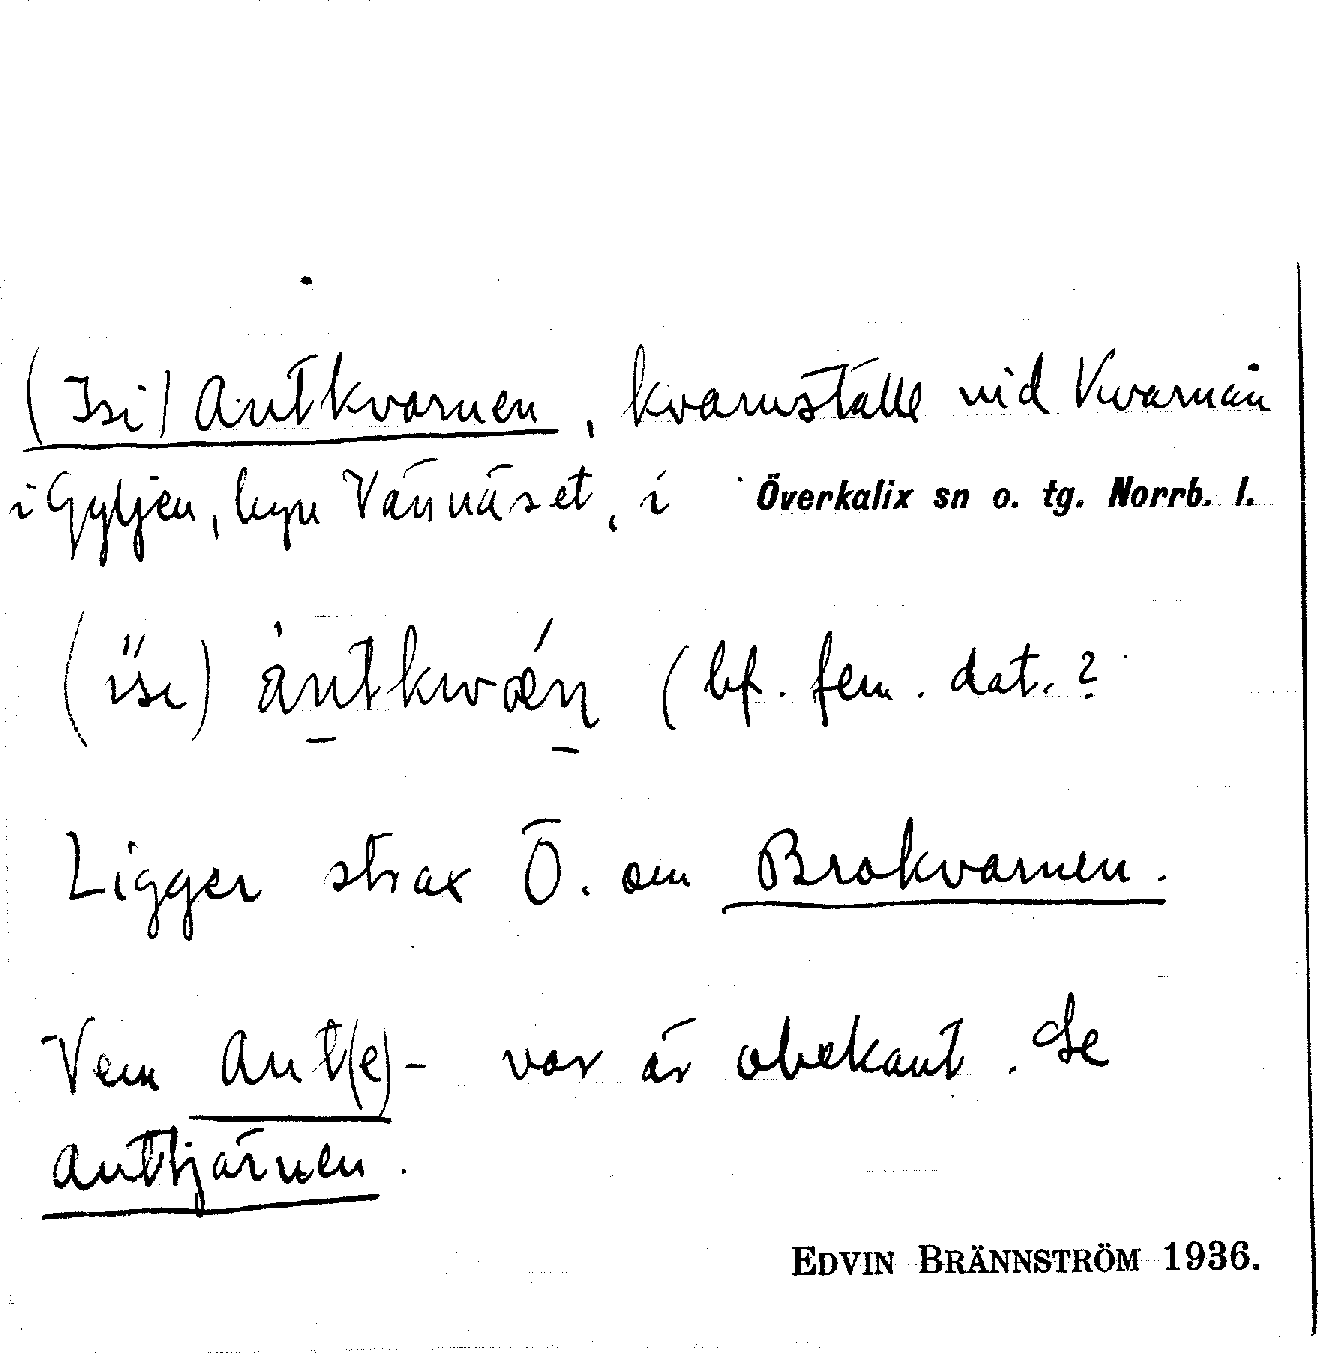 (Isi) Antkvarnen, kvarnställe vid Kvarnån
i Gyljen, byn Vännäset, i Överkalix sn o. tg. Norrb. l.
(bf. fem. dat.?
Ligger strax Ö. om Brokvarnen.
Vem Ant(e)- var är obekant. Se
Anttjärnen.
EDVIN BRÄNNSTRÖM 1936.